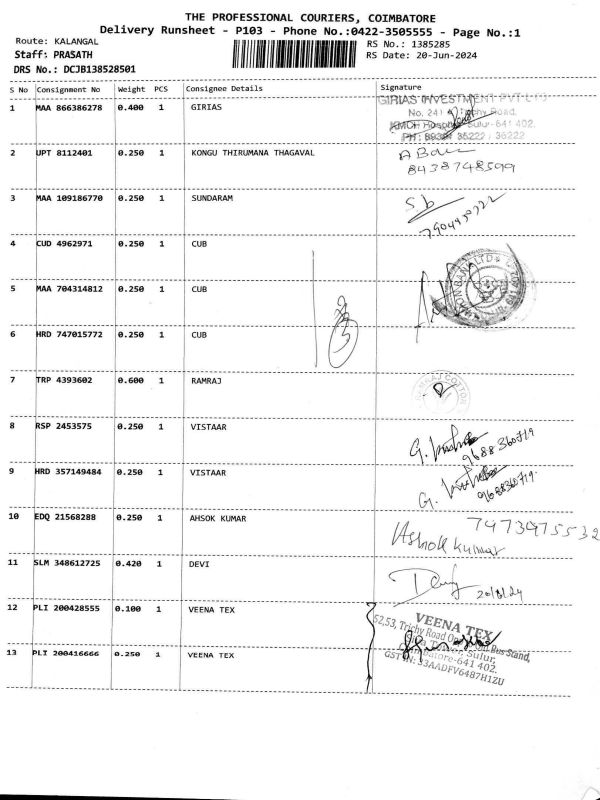 THE PROFESSIONAL COURIERS, COIMBATORE
Delivery Runsheet - P103 - Phone No.:0422-3505555 - Page No.:1
Route: KALANGAL
RS No.: 1385285
Staff: PRASATH
RS Date: 20-Jun-2024
DRS No.: DCJB138528501
S No Consignment No Weight PCS Consignee Details Signature
1 MAA 866386278 0.400 1 GIRIAS
GIRIAS INVESTMENT PVT LTD
No. 241 Trichy Road,
KMCH Hospital Sulur-641 402.
PH: 36222 / 36222
2 UPT 8112401 0.250 1 KONGU THIRUMANA THAGAVAL
8438748599
3 MAA 109186770 0.250 1 SUNDARAM
S b
4 CUD 4962971 0.250 1 CUB
5 MAA 704314812 0.250 1 CUB
6 HRD 747015772 0.250 1 CUB
7 TRP 4393602 0.600 1 RAMRAJ
RAMRAJ COTTON
8 RSP 2453575 0.250 1 VISTAAR
G.
9688360719
9 HRD 357149484 0.250 1 VISTAAR
G.
9688360719.
10 EDQ 21568288 0.250 1 AHSOK KUMAR
7473975532
Ashok kumar
11 SLM 348612725 0.420 1 DEVI
Devi 20/6/24
12 PLI 200428555 0.100 1 VEENA TEX
VEENA TEX
52,53, Trichy Road Opp Old Bus Stand,
Sulur,
Coimbatore-641 402.
GST IN: 33AADFV6487H1ZU
13 PLI 200416666 0.250 1 VEENA TEX